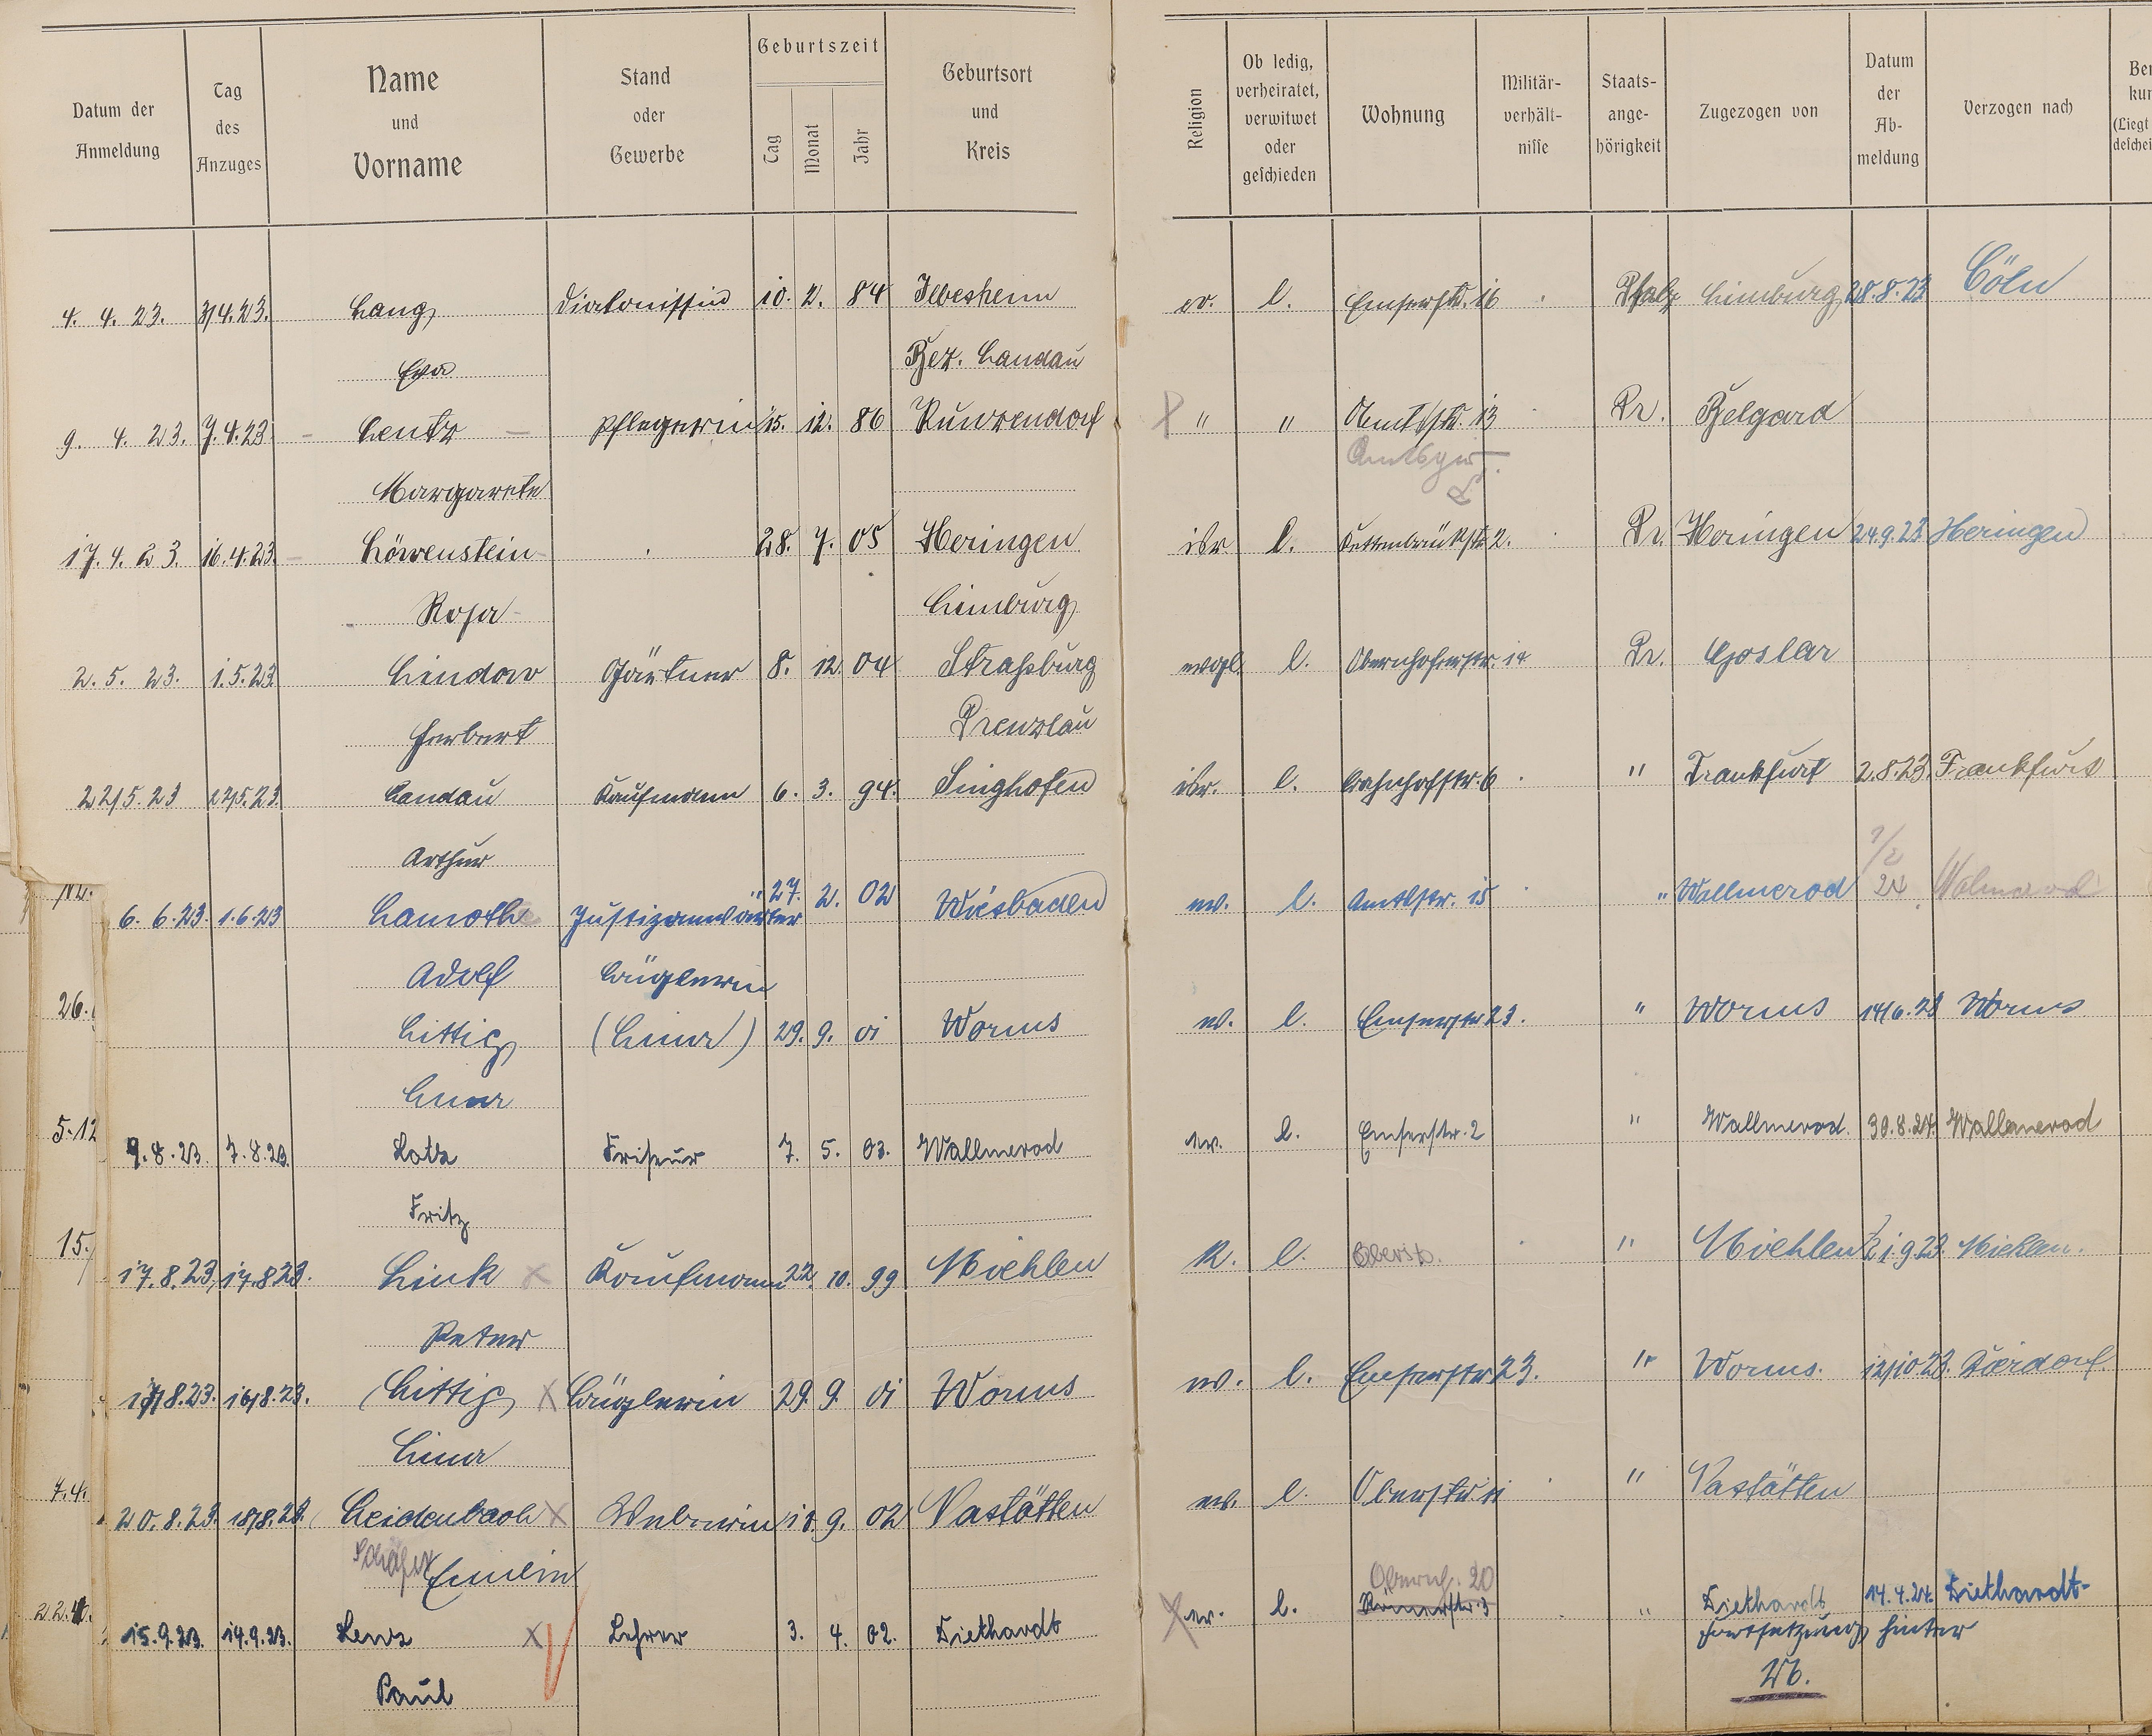 Datum der Anmeldung Tag des Anzuges Name und Vorname Stand oder Gewerbe Geburtszeit Tag Monat Jahr Geburtsort und Kreis Religion Ob ledig, verheiratet, verwitwet oder geschieden Wohnung Militär-verhält-nisse Staats-ange-hörigkeit Zugezogen von Datum der Ab-meldung Verzogen nach
4. 4. 23. 3/4.23. Lang Diakonissin 10. 2. 84 Ilbesheim ev. l. Emserstr. 16 Pfalz Limburg 28.8.23 Cöln
Eva Bez. Landau
9. 4. 23. 7.4.23 Lentz Pflegerin 15. 12. 86 Kunzendorf " " Amtsstr. 13 Pr. Belgard
Margarete
17. 4. 23. 16.4.23. Löwenstein 28. 7. 05 Heringen isr l. Kettenbrückstr. 2. Pr. Heringen 24.9.23 Heringen
Rosa Limburg
2. 5. 23. 1.5.23 Lindow Gärtner 8. 12. 04 Straßburg evgl. l. Obernhoferstr. 14 Pr. Goslar
Herbert Prenzlau
22/5.23 22/5.23 Landau Kaufmann 6. 3. 94. Singhofen isr. l. Bahnhofstr. 6 " Frankfurt 2.8.23 Frankfurt
Arthur
6. 6. 23. 1.6.23 Lamothe Justizanwärter 27. 2. 02 Wiesbaden ev. l. Amtsstr. 15 " Wallmerod Walmerod
Adolf Büglerin
Littig (Lina) 29. 9. 01 Worms ev. l. Emserstr 23. " Worms 14/6.23 Worms
Lina
9.8.23. 7.8.23. Lotz Friseur 7. 5. 03. Wallmerod ev. l. Emserstr. 2 " Wallmerod. 30.8.24. Wallmerod
Fritz
17.8.23. 17.8.23. Link Kaufmann 22. 10. 99 Miehlen K. l. Oberstr. " Miehlen 1.9.23. Miehlen.
Peter
17/8.23. 16/8.23. Littig Büglerin 29. 9. 01 Worms ev. l. Emserstr 23. " Worms. 12/10 23. Dierdorf.
Lina
20.8.23. 18/8.23. Leidenbach Weberin 10. 9. 02 Nastätten ev. l. Oberstr. 11 " Nastätten
Schäfer Emilie
Obernh. 20
15.9.23. 14.9.23. Lenz Lehrer 3. 4. 02. Diethardt ev. l. Römerstr. 3 " Diethardt 14.4.24. Diethardt
Paul Fortsetzung hinter
W.